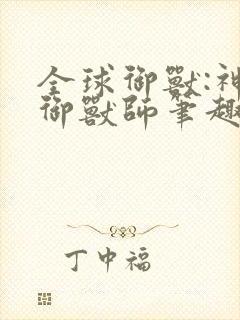 全球御獸:神
御獸師筆趣
丁中福